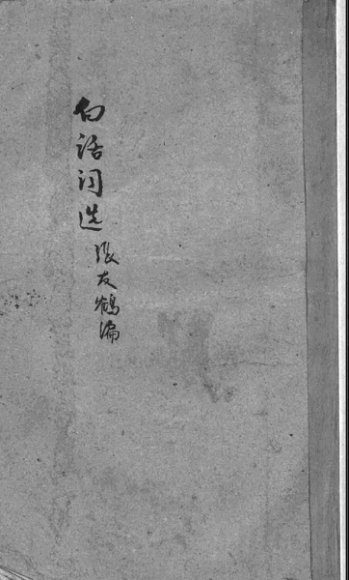 白话词选
张友鹤编